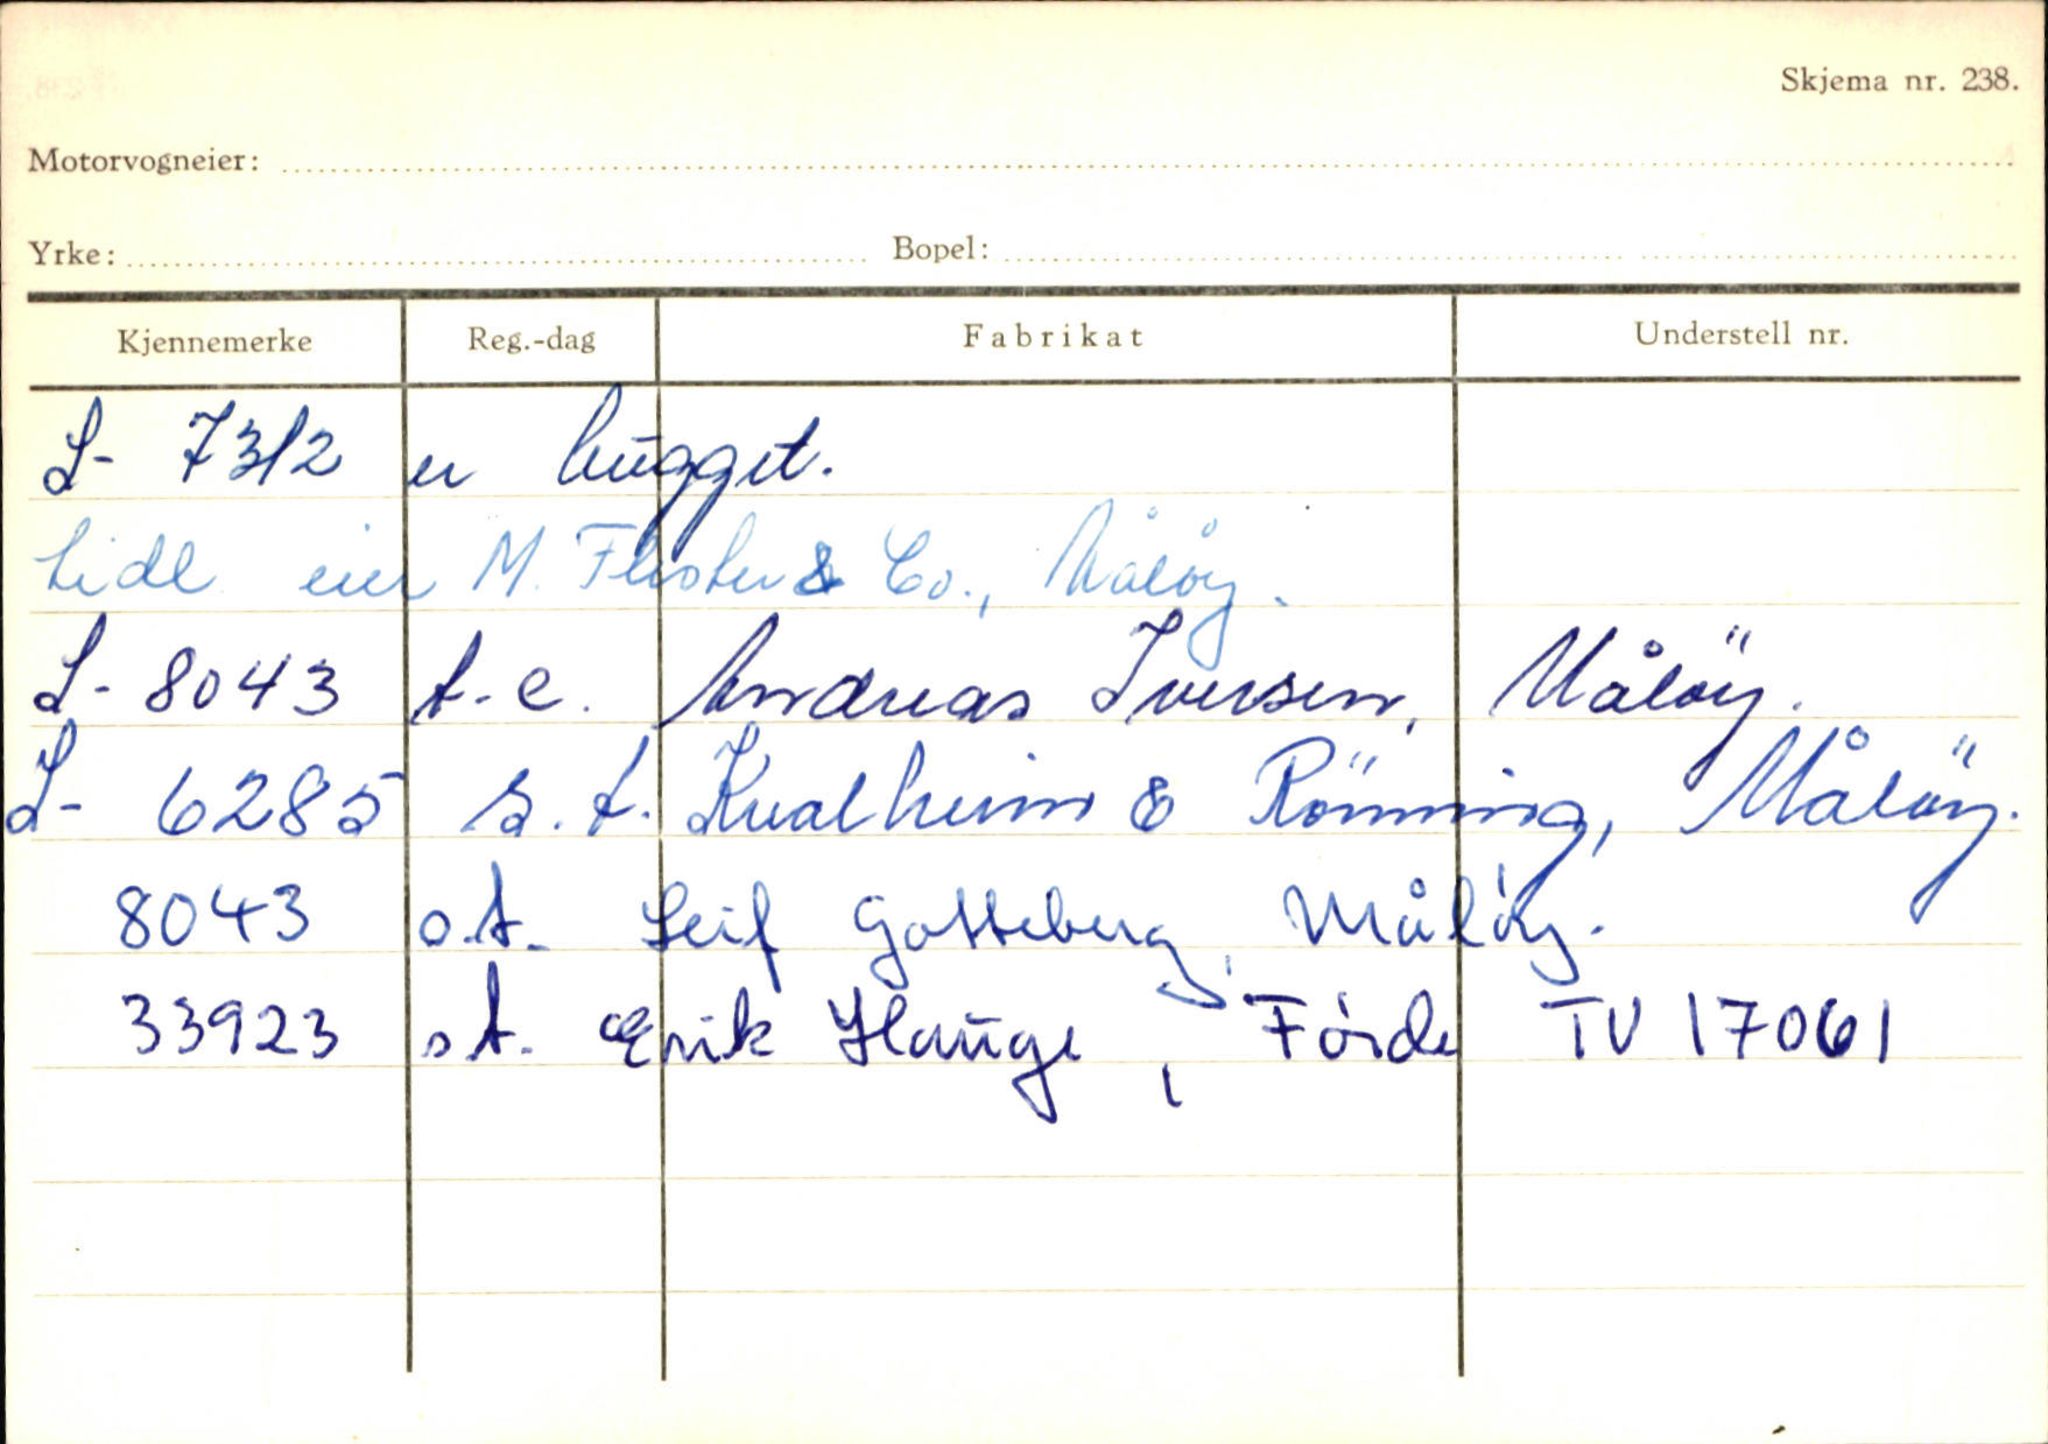 Skjema nr. 238.
Motorvogneier:
Yrke: Bopel:
Kjennemerke Reg.-dag Fabrikat Understell nr.
S- 7312 er hugget.
tidl eier M. & Co., Måløy.
S- 8043 t.e. Andreas Iversen, Målöy.
S- 6285 s.t. Kvalheim & Rönning, Målöy.
8043 o.t. Leif Gotteberg, Måløy.
33923 s.t. Erik Hauge, Førde TV 17061